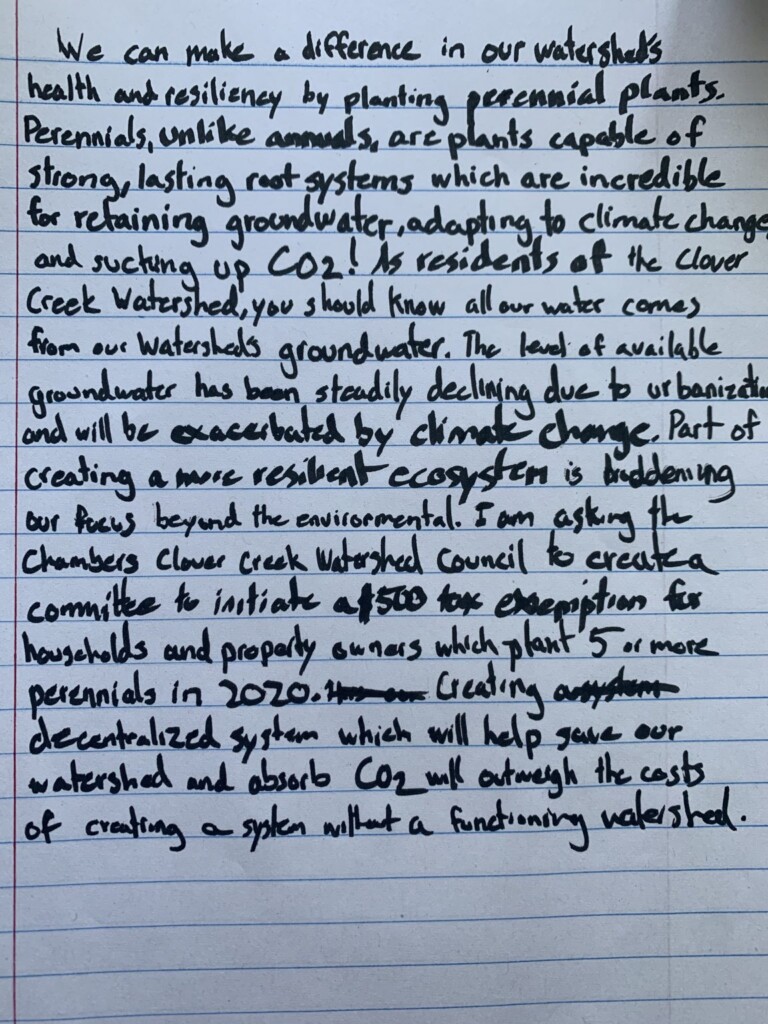 We can make a difference in our watershed's
health and resiliency by planting perennial plants.
Perennials, unlike annuals, are plants capable of
strong, lasting root systems which are incredible
for retaining groundwater, adapting to climate change
and sucking up CO2! As residents of the Clover
Creek Watershed, you should know all our water comes
from our Watershed's groundwater. The level of available
groundwater has been steadily declining due to urbanization
and will be exacerbated by climate change. Part of
creating a more resilient ecosystem is braddening
our focus beyond the environmental. I am asking the
Chambers Clover Creek Watershed Council to create a
committee to initiate a $500 tax exemption for
households and property owners which plant 5 or more
perennials in 2020. Creating a
decentralized system which will help save our
watershed and absorb CO2 will outweigh the costs
of creating a system without a functioning watershed.